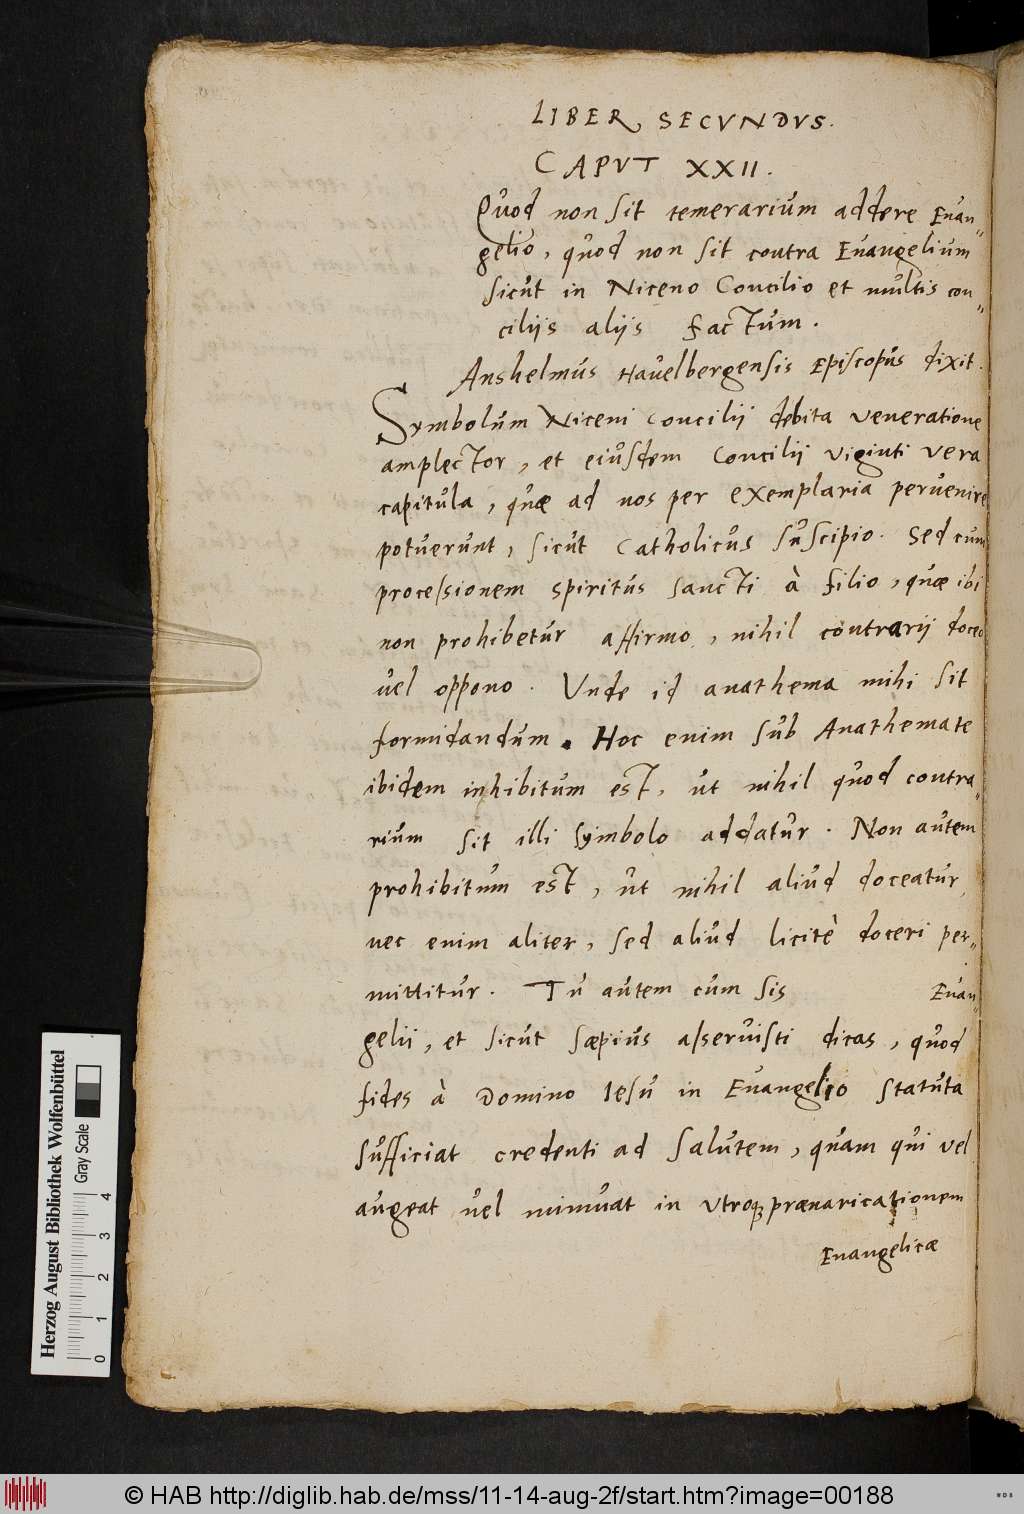 LIBER SECVNDVS.
CAPVT XXII.
Quod non sit temerarium addere Evan=
gelio, quod non sit contra Evangelium
sicut in Niceno Concilio et multis con=
ciliis aliis factum.
Anshelmus Havelbergensis Episcopus dixit.
Symbolum Niceni Concilii debita veneratione
amplector, et eiusdem Concilii viginti vera
capitula, quæ ad nos per exemplaria pervenire
potuerunt, sicut Catholicus suscipio. Sed cum
processionem spiritus sancti à filio, quæ ibi
non prohibetur affirmo, nihil contrarii doceo
vel oppono. Vnde id anathema mihi sit
formidandum. Hoc enim sub Anathemate
ibidem inhibitum est, ut nihil quod contra=
rium sit illi symbolo addatur. Non autem
prohibitum est, ut nihil aliud doceatur,
nec enim aliter, sed aliud licitè doceri per=
mittitur. Tu autem cum sis Evan=
gelii, et sicut sæpius asseruisti dicas, quod
fides à Domino Iesu in Evangelio statuta
sufficiat credenti ad salutem, quam qui vel
augeat vel minuat in utroq; prævaricationem
Evangelicæ
Herzog August Bibliothek Wolfenbüttel
Gray Scale
0 1 2 3 4
© HAB http://diglib.hab.de/mss/11-14-aug-2f/start.htm?image=00188